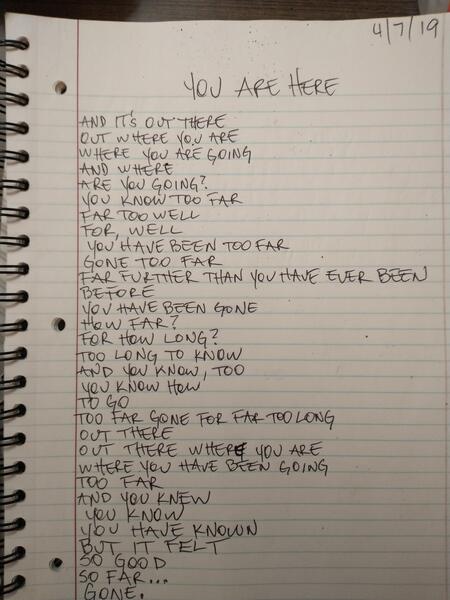 4/7/19
YOU ARE HERE
AND IT'S OUT THERE
OUT WHERE YOU ARE
WHERE YOU ARE GOING
AND WHERE
ARE YOU GOING?
YOU KNOW TOO FAR
FAR TOO WELL
FOR, WELL
YOU HAVE BEEN TOO FAR
GONE TOO FAR
FAR FURTHER THAN YOU HAVE EVER BEEN
BEFORE
YOU HAVE BEEN GONE
HOW FAR?
FOR HOW LONG?
TOO LONG TO KNOW
AND YOU KNOW, TOO
YOU KNOW HOW
TO GO
TOO FAR GONE FOR FAR TOO LONG
OUT THERE
OUT THERE WHERE YOU ARE
WHERE YOU HAVE BEEN GOING
TOO FAR
AND YOU KNEW
YOU KNOW
YOU HAVE KNOWN
BUT IT FELT
SO GOOD
SO FAR...
GONE.